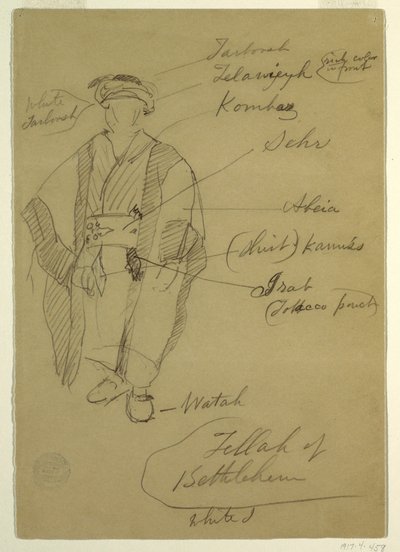 Tarboosh
Telawiyeh (rich color
in front)
White
Tarboosh
Kombaz
Sehr
Abeia
(Shirt) Kamiss
Grab
(Tobacco pouch)
Watah
Fellah of
Bethlehem
White
1917-4-459